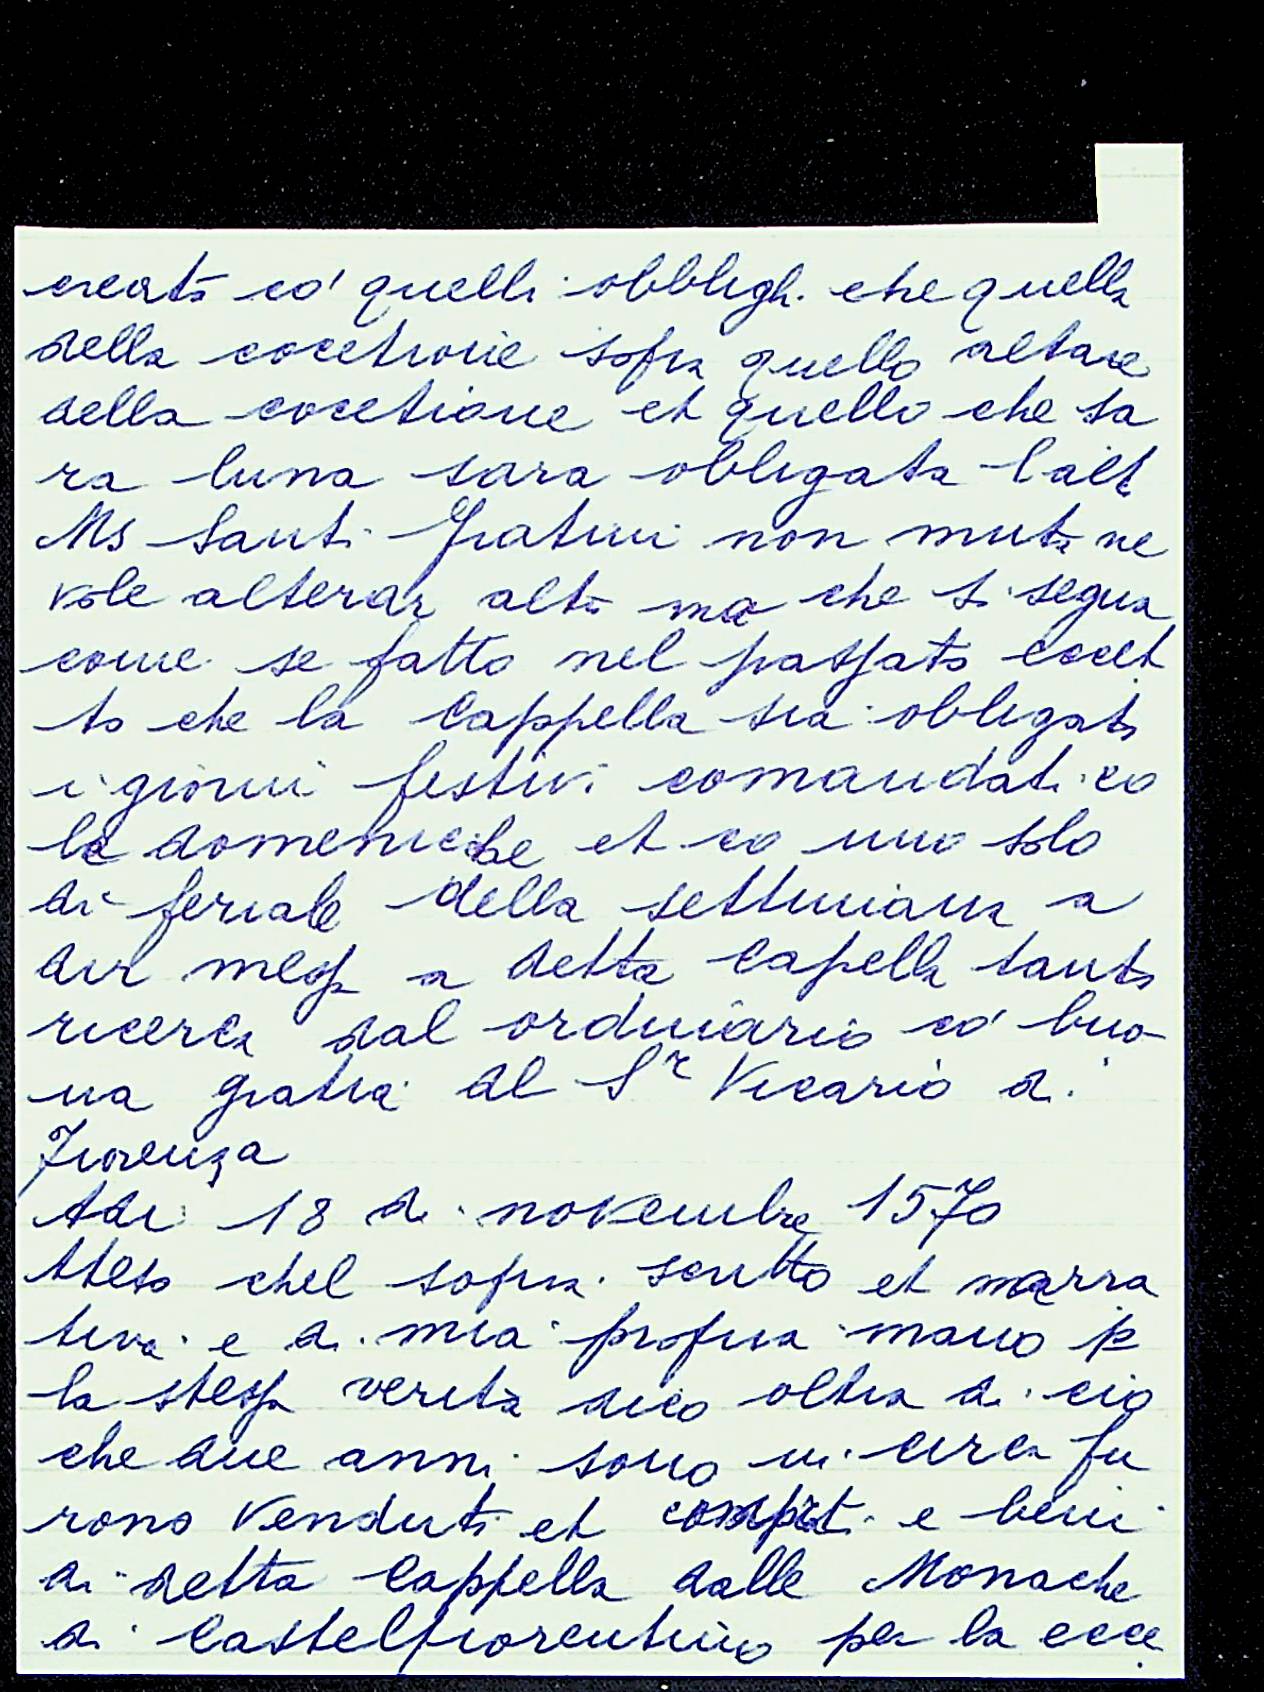 creato co' quelli obblighi che quella
della cocetione sopra quello altare
della cocetione et quello che sa
ra luna sara obligata lalt
Ms Santi Gratini non muta ne
vole alterar alto ma che si segua
come se fatto nel passato eccet
to che la Cappella sia obligata
i giorni festivi comandati co
le domeniche et co uno solo
di feriale della settimana a
dir messa a detta Capella tanto
ricerca dal ordinario co' buo
na gratia del Sr Vicario di
Fiorenza
Adi 18 di novembre 1570
Atesto chel sopra scritto et narra
tiva e di mia propria mano p
la stessa verità dico oltra di cio
che due anni sono in circa fu
rono venduti et e beni
di detta Cappella dalle Monache
di Castelfiorentino per la ecce